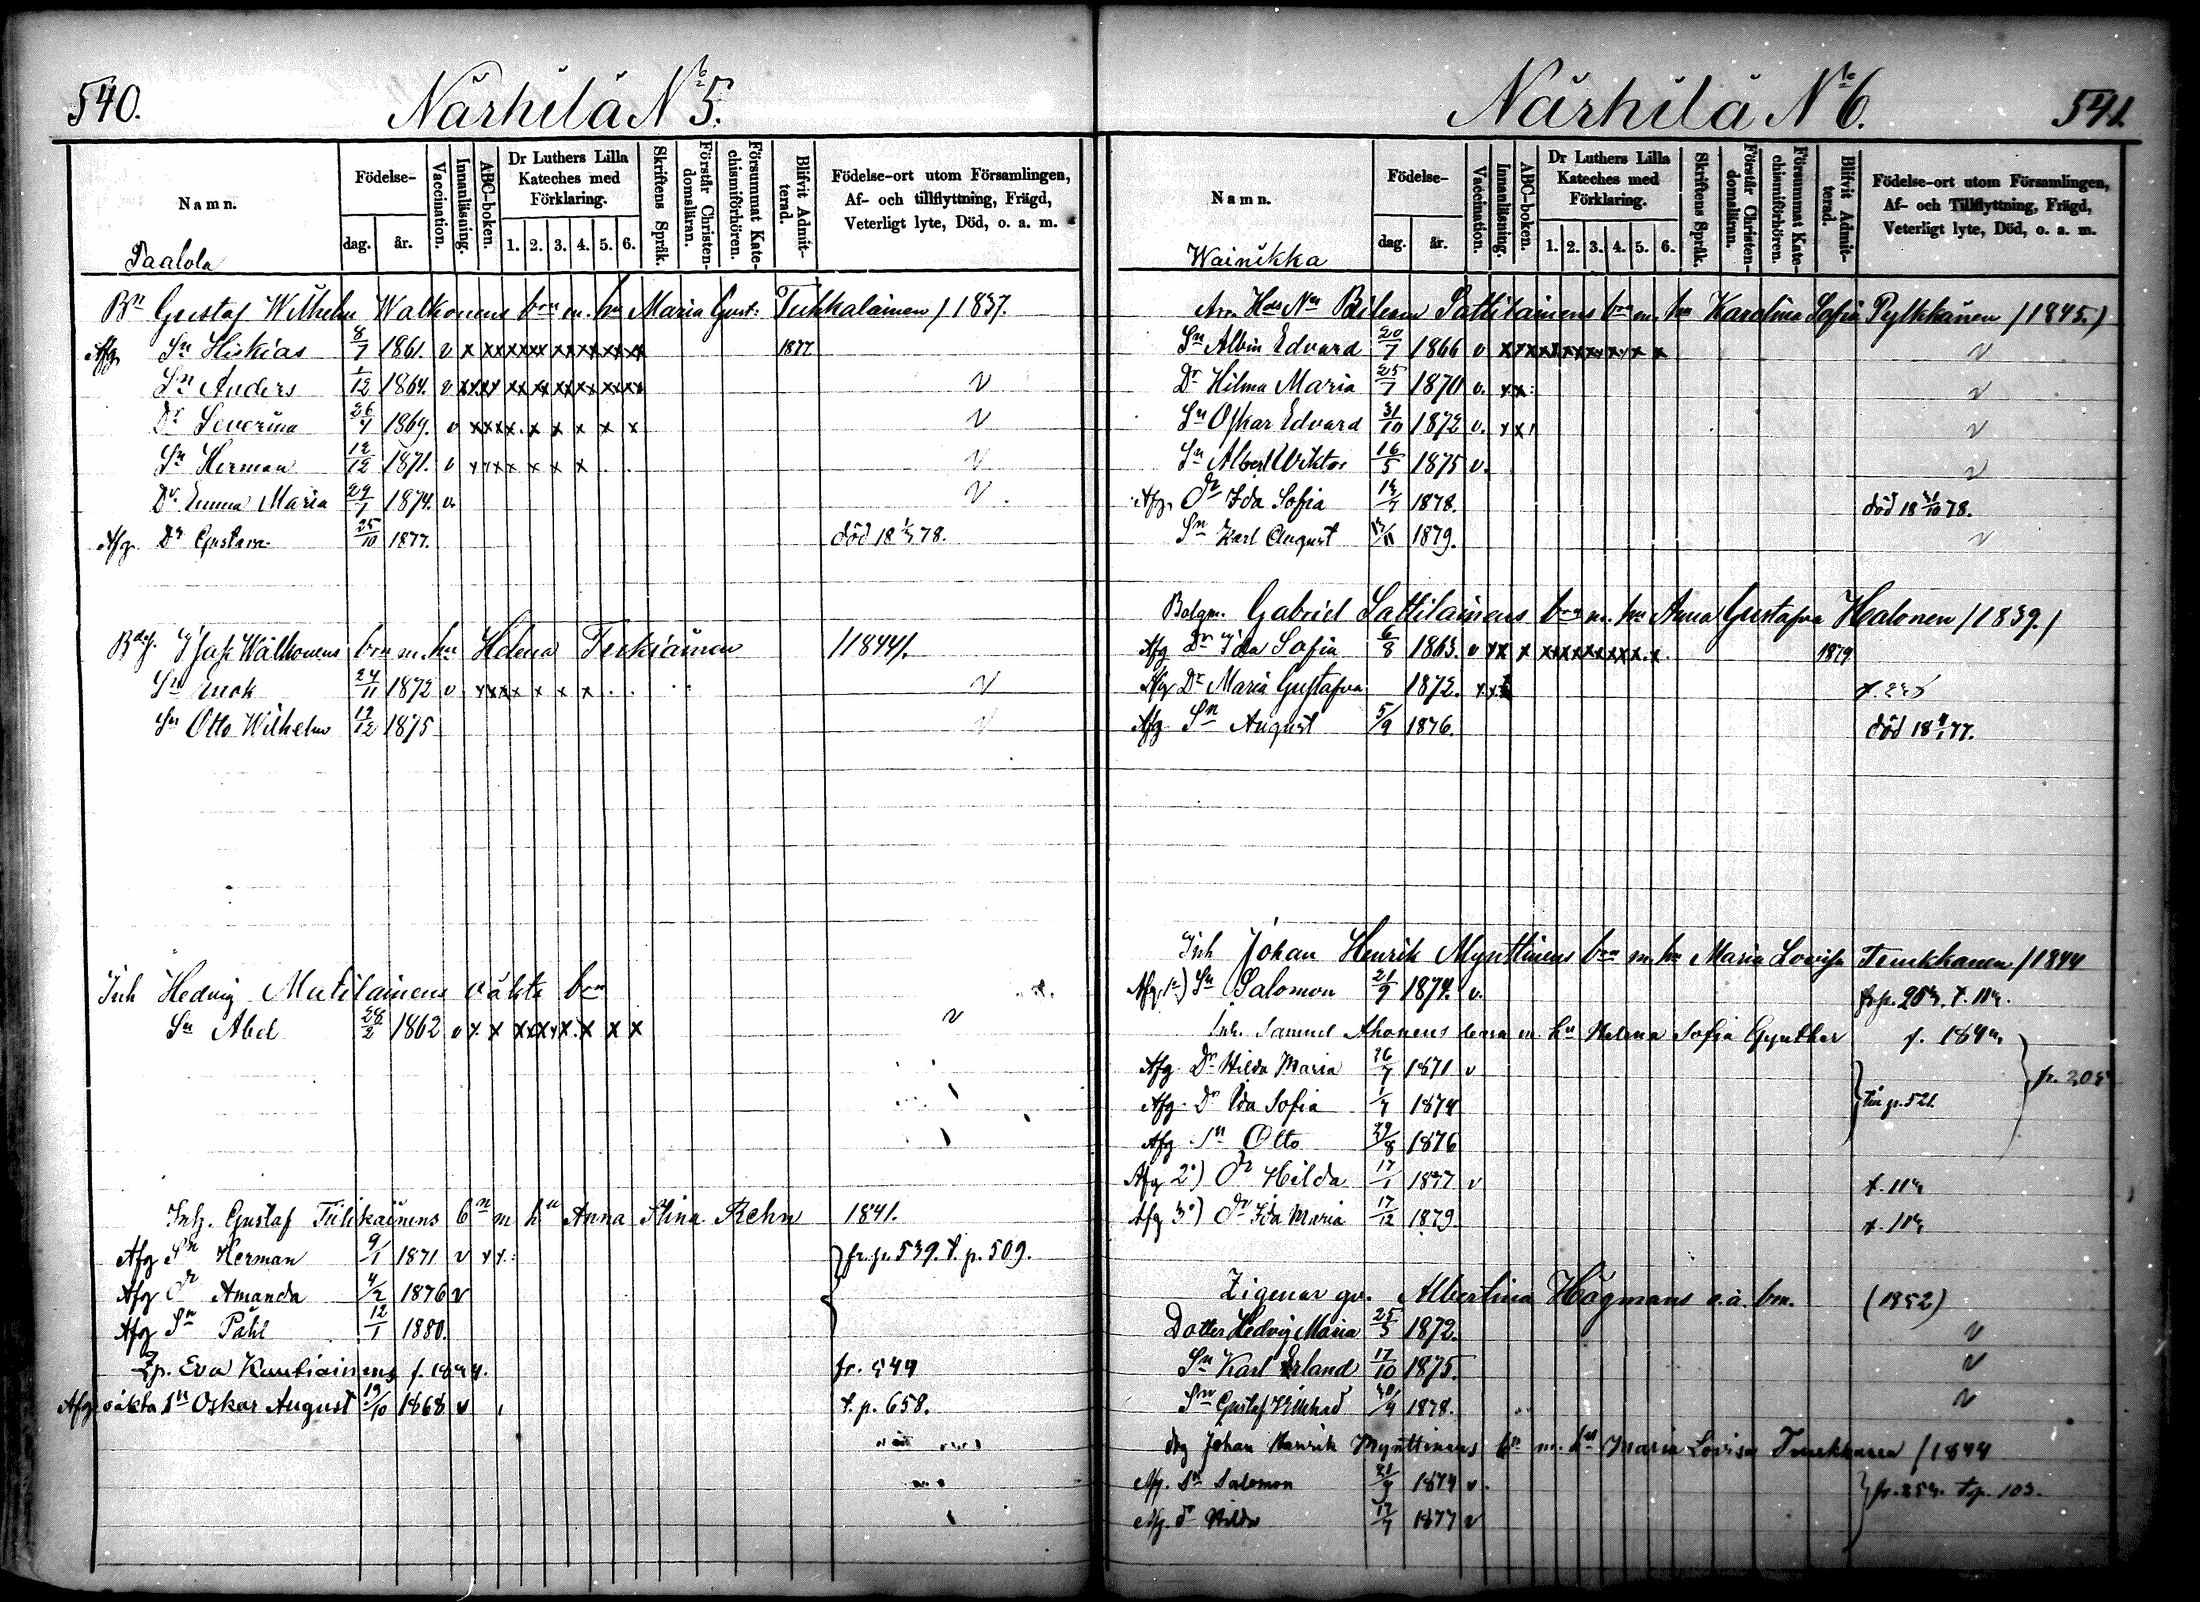 540.
Närhilä No 5.
Namn.
Födelse-
dag.
år.
Vaccination.
Innanläsning.
ABC-boken.
Dr Luthers Lilla Kateches med Förklaring.
1. 2. 3. 4. 5. 6.
Skriftens Språk.
Förstår Christendomsläran.
Försummat Katechismiförhören.
Blifvit Admitterad.
Födelse-ort utom Församlingen, Af- och tillflyttning, Frägd, Veterligt lyte, Död, o. a. m.
Paalola
Bn Gustaf Wilhelm Walkonens brn m. hu Maria Gust: Tiihkalainen / 1837.
Afg Sn Hiskias 8/7 1861. v x xxxxxxx xxxxxxxx 1877
Sn Anders 1/12 1864. v xxxx xxxxxxxxxxxxx v
Dr Severina 26/7 1869. v xxxx. x x x x x v
Sn Herman 12/12 1871. v xxxx x x x . . v
Dr. Emma Maria 29/1 1874. v. v
Afg. Dr Gustava 25/10 1877. död 18 1/5 78.
Johan Walkonens brn m. hu Helena Turkiainen / 1844/.
Sn Enok 24/11 1872 v xxxx x x x . . v
Sn Otto Wilhelm 12/12 1875 v
Inh Hedvig Matilainens oäkta brn
Sn Abel 28/2 1862 v x x xxxxx.x x x v
Inh. Gustaf Tiihkainens bn m hu Anna Stina Rehn 1841.
Afg Sn Herman 9/1 1871 v xx. fr. p. 539. t. p. 509.
Afg Dr Amanda 4/2 1876 v
Afg Sn Påhl 12/1 1880.
Eva Kautiainens f. 1844. fr. 544
Afg oäkta Sn Oskar August 19/10 1868 v t. p. 658.
541.
Närhilä No 6.
Namn.
Födelse-
dag.
år.
Vaccination.
Innanläsning.
ABC-boken.
Dr Luthers Lilla Kateches med Förklaring.
1. 2. 3. 4. 5. 6.
Skriftens Språk.
Förstår Christendomsläran.
Försummat Katechismiförhören.
Blifvit Admitterad.
Födelse-ort utom Församlingen, Af- och Tillflyttning, Frägd, Veterligt lyte, Död, o. a. m.
Wainikka
Bileam Lattilainens brn m. hu Karolina Sofia Pylkkänen / 1845.)
Sn Albin Edvard 20/7 1866 v xxxxxxxxxx x x v
Dr Hilma Maria 25/7 1870 v. xx: v
Sn Oskar Edvard 31/10 1872 v. xx v
Sn Albert Wiktor 16/5 1875 v. v
Afg. Dr Ida Sofia 1878. död 18 31/10 78.
Sn Karl August 1879. v
Bolgm. Gabriel Lattilainens brn m. hu Anna Gustafva Halonen / 1839. /
Afg Dr Ida Sofia 6/8 1863. v xx x xxxxxxxxx.x. 1879
Afg Dr Maria Gustafva 1872. xx
Afg Sn August 5/9 1876. död 18 4/1 77.
Inh Johan Henrik Mynttinens brn m. hu Maria Lovisa Trukkanen / 1844
Afg. 1o) Sn Salomon 21/9 1874. v.
Inh. Samuel Ahonens barn m. hu Helena Sofia Gynther f.
Afg Dr Hilda Maria 26/7 1871 v
Afg. Dr Ida Sofia 1/7 1874 till p. 521.
Afg. Sn Otto 29/8 1876
Afg 2o) Dr Hilda 17/1 1877 v
Afg 3o) Dr Ida Maria 17/12 1879.
Zigenar qv. Albertina Högmans o.ä. brn. (1852)
Dotter Hedvig Maria 25/5 1872. v
Sn Karl Erland 17/10 1875. v
Sn Gustaf 1878. v
Johan Henrik Mynttinens bn m. hu Maria Lovisa Trukkanen / 1844
Afg. Sn Salomon 21/9 1874 v.
Afg. Dr Hilda 17/1 1877 v